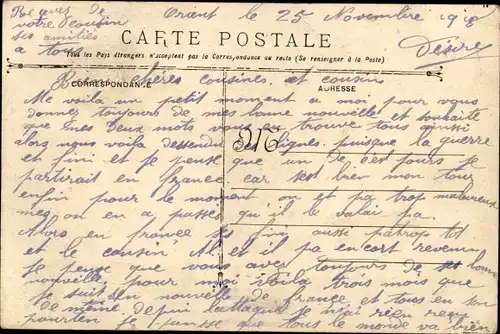 Recevez de
votre Cousin
ses amitiés
a tous
Orient le 25 Novembre 1918
Désiré
CARTE POSTALE
Tous les Pays étrangers n'acceptent pas la Correspondance au recto (Se renseigner à la Poste)
CORRESPONDANCE
ADRESSE
Bien chères cousines et cousins
Me voila un petit moment a moi pour vous
donner toujours de mes bonne nouvelle et souhaite
que mes deux mots vous trouve tous aussi
alors nous voila dessendu des lignes puisque la guerre
et fini et je pense que un de ces jours je
partirait en france car ses bien mon tour
enfin pour le moment on et pa trop maleureux
mes on en a passés qu'il le valai pa
Alors en france fini aussi pa trop tot
et le cousin et il pa encort revenu
Je pense que vous avez toujours de
nouvelle pour moi voila trois mois que
Je suit nouvelle de france et tous en
de même depui lattaque Je n'ai rien reçu
pourten je pense que tous le monde